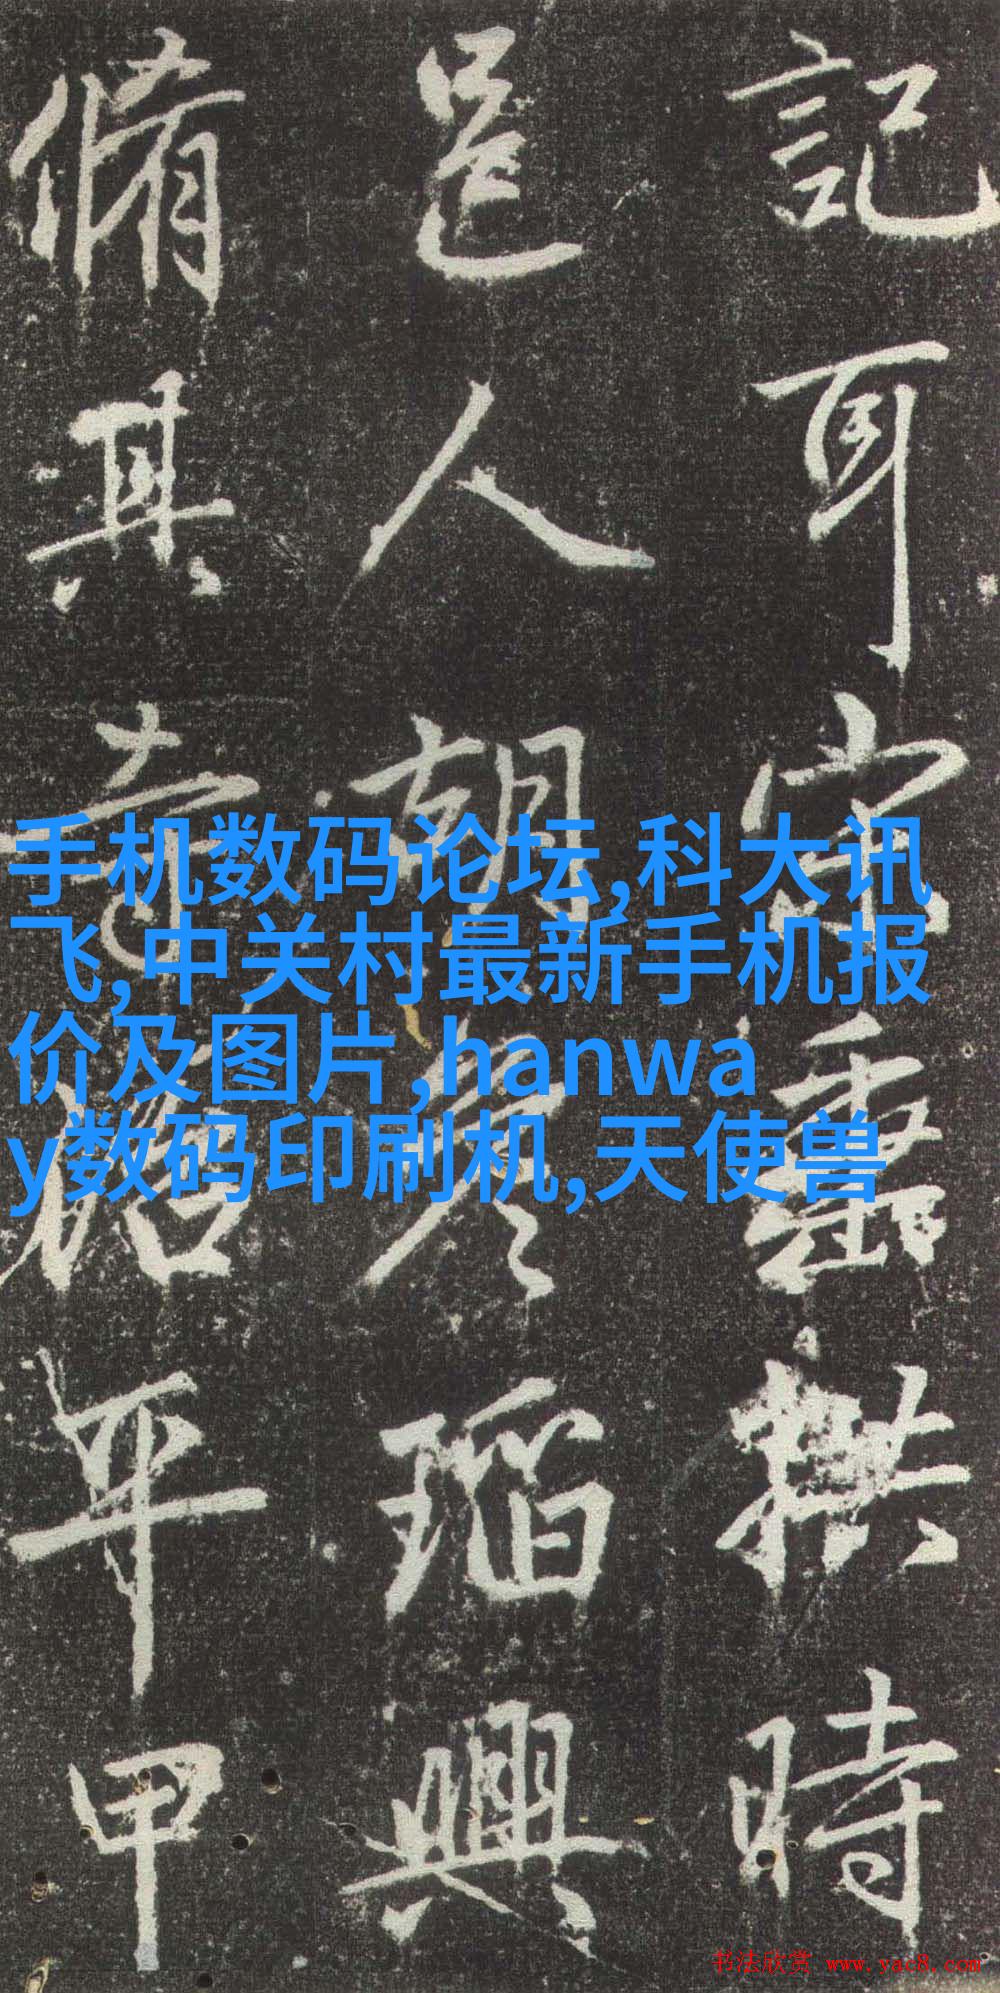 記耳拱時
邑人瑫興
脩其平甲
手机数码论坛,科大讯
飞,中关村最新手机报
价及图片,hanwa
y数码印刷机,天使兽
书法欣赏 www.yac8.com